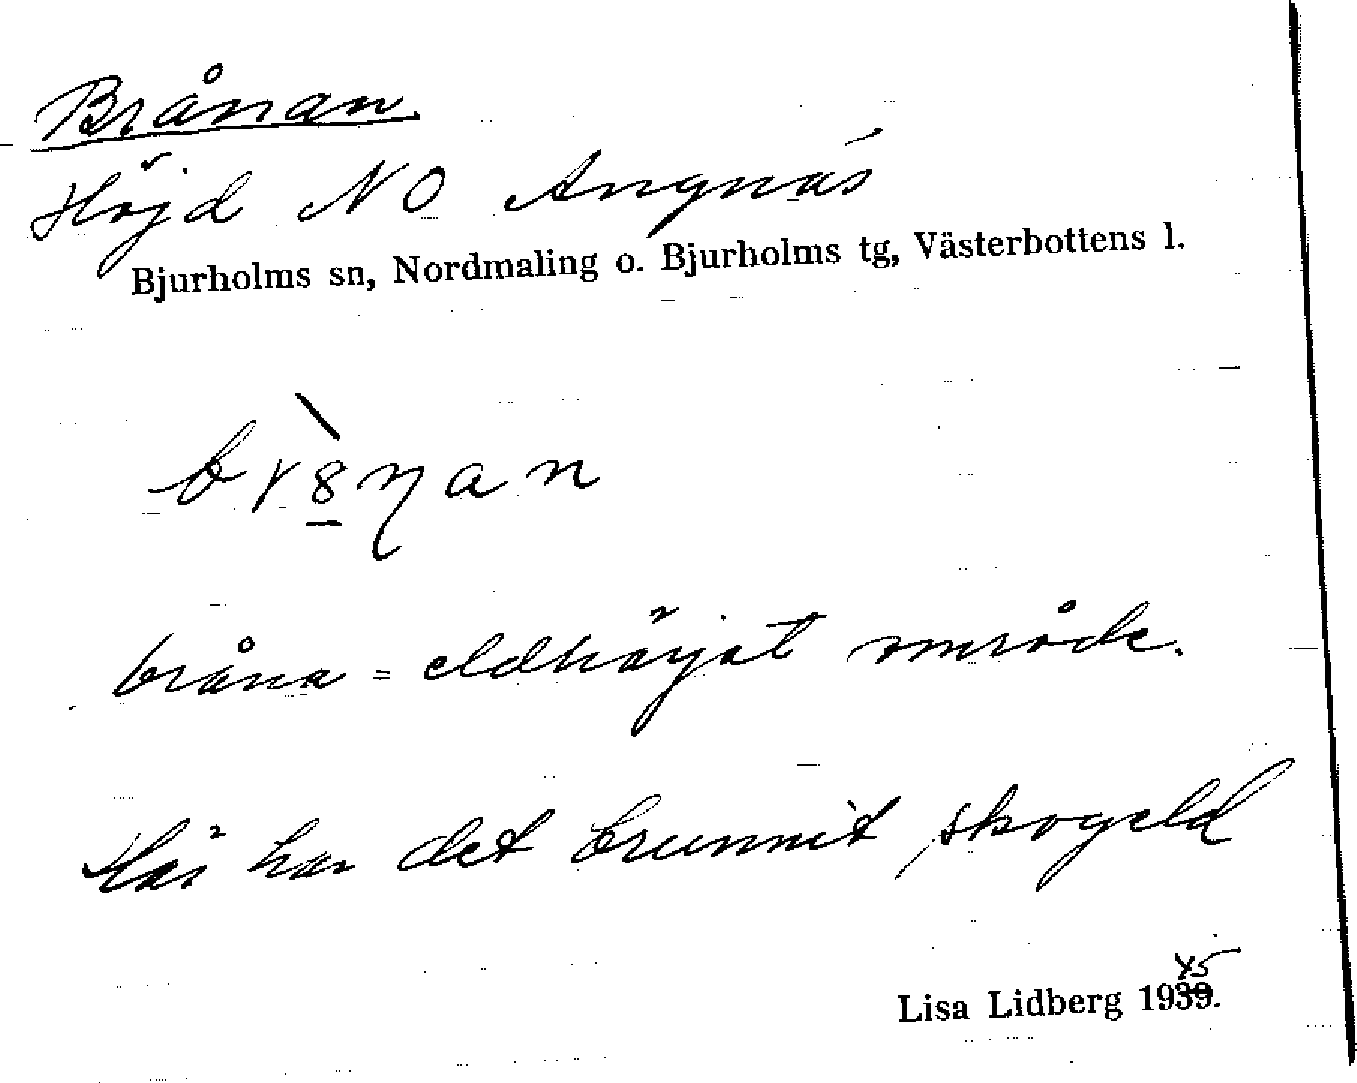 Brånan
Höjd NO Angnäs
Bjurholms sn, Nordmaling o. Bjurholms tg, Västerbottens l.
bråna = eldhärjat område.
Här har det brunnit skogeld
45
Lisa Lidberg 1939.